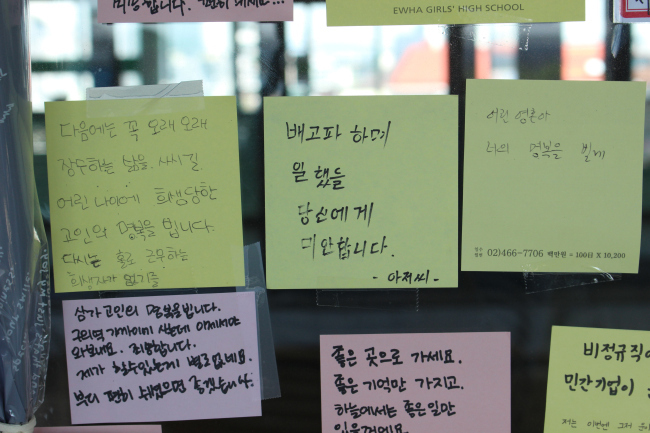 미안합니다. 편히 쉬세요...
EWHA GIRLS' HIGH SCHOOL
다음에는 꼭 오래 오래
장수하는 삶을. 사시길.
어린 나이에 희생당한
고인의 명복을 빕니다.
다시는 홀로 근무하는
희생자가 없기를
배고파 하며
일했을
당신에게
미안합니다.
- 아저씨 -
어린 영혼아
너의 명복을 빌게
02)466-7706 백만원 = 100日 X 10,200
삼가 고인의 명복을 빕니다.
구의역 가까이에 사는데 이제서야
와보네요. 죄송합니다.
제가 할수있는게 별로 없네요.
부디 편히 쉬셨으면 좋겠습니다.
좋은 곳으로 가세요.
좋은 기억만 가지고.
하늘에서는 좋은일만
비정규직이
민간기업이
저는 이번엔 그저